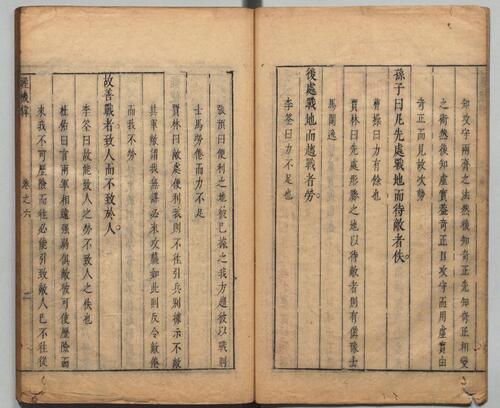 知攻守兩齊之法然後知奇正先知奇正相變
之術然後知虛實蓋奇正自攻守而用虛實由
奇正而見故次勢
孫子曰凡先處戰地而待敵者佚。
曹操曰力有餘也
賈林曰先處形勝之地以待敵者則有備豫士
馬閑逸
後處戰地而趨戰者勞。
李筌曰力不足也
張預曰便利之地彼已據之我方趨彼以戰則
士馬勞倦而力不足
賈林曰敵處便利我則不往引兵別據示不敵
其軍敵謂我無謀必來攻襲如此則反令敵倦
而我不勞
故善戰者。致人而不致於人。
李筌曰故能致人之勞不致人之佚也
杜佑曰言兩軍相遠強弱俱敵彼可使歷險而
來我不可歷險而往必能引致敵人已不往從
卷之六
二